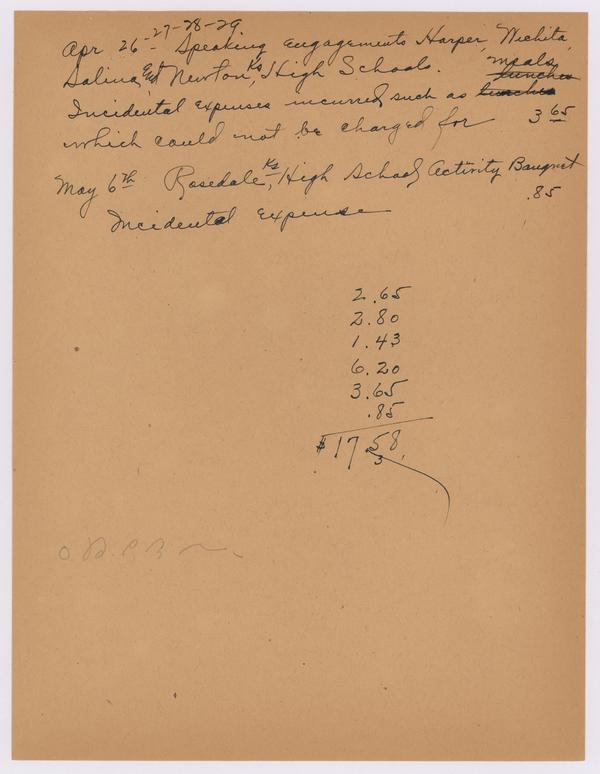 Apr 26-27-28-29 Speaking engagements Harper, Wichita,
Salina and Newton, Ks High Schools. meals
Incidental expenses incurred such as lunches lunches
which could not be charged for 3 65
May 6th Rosedale, Ks High School Activity Banquet
Incidental Expense .85
2.65
2.80
1.43
6.20
3.65
.85
$17.58
3